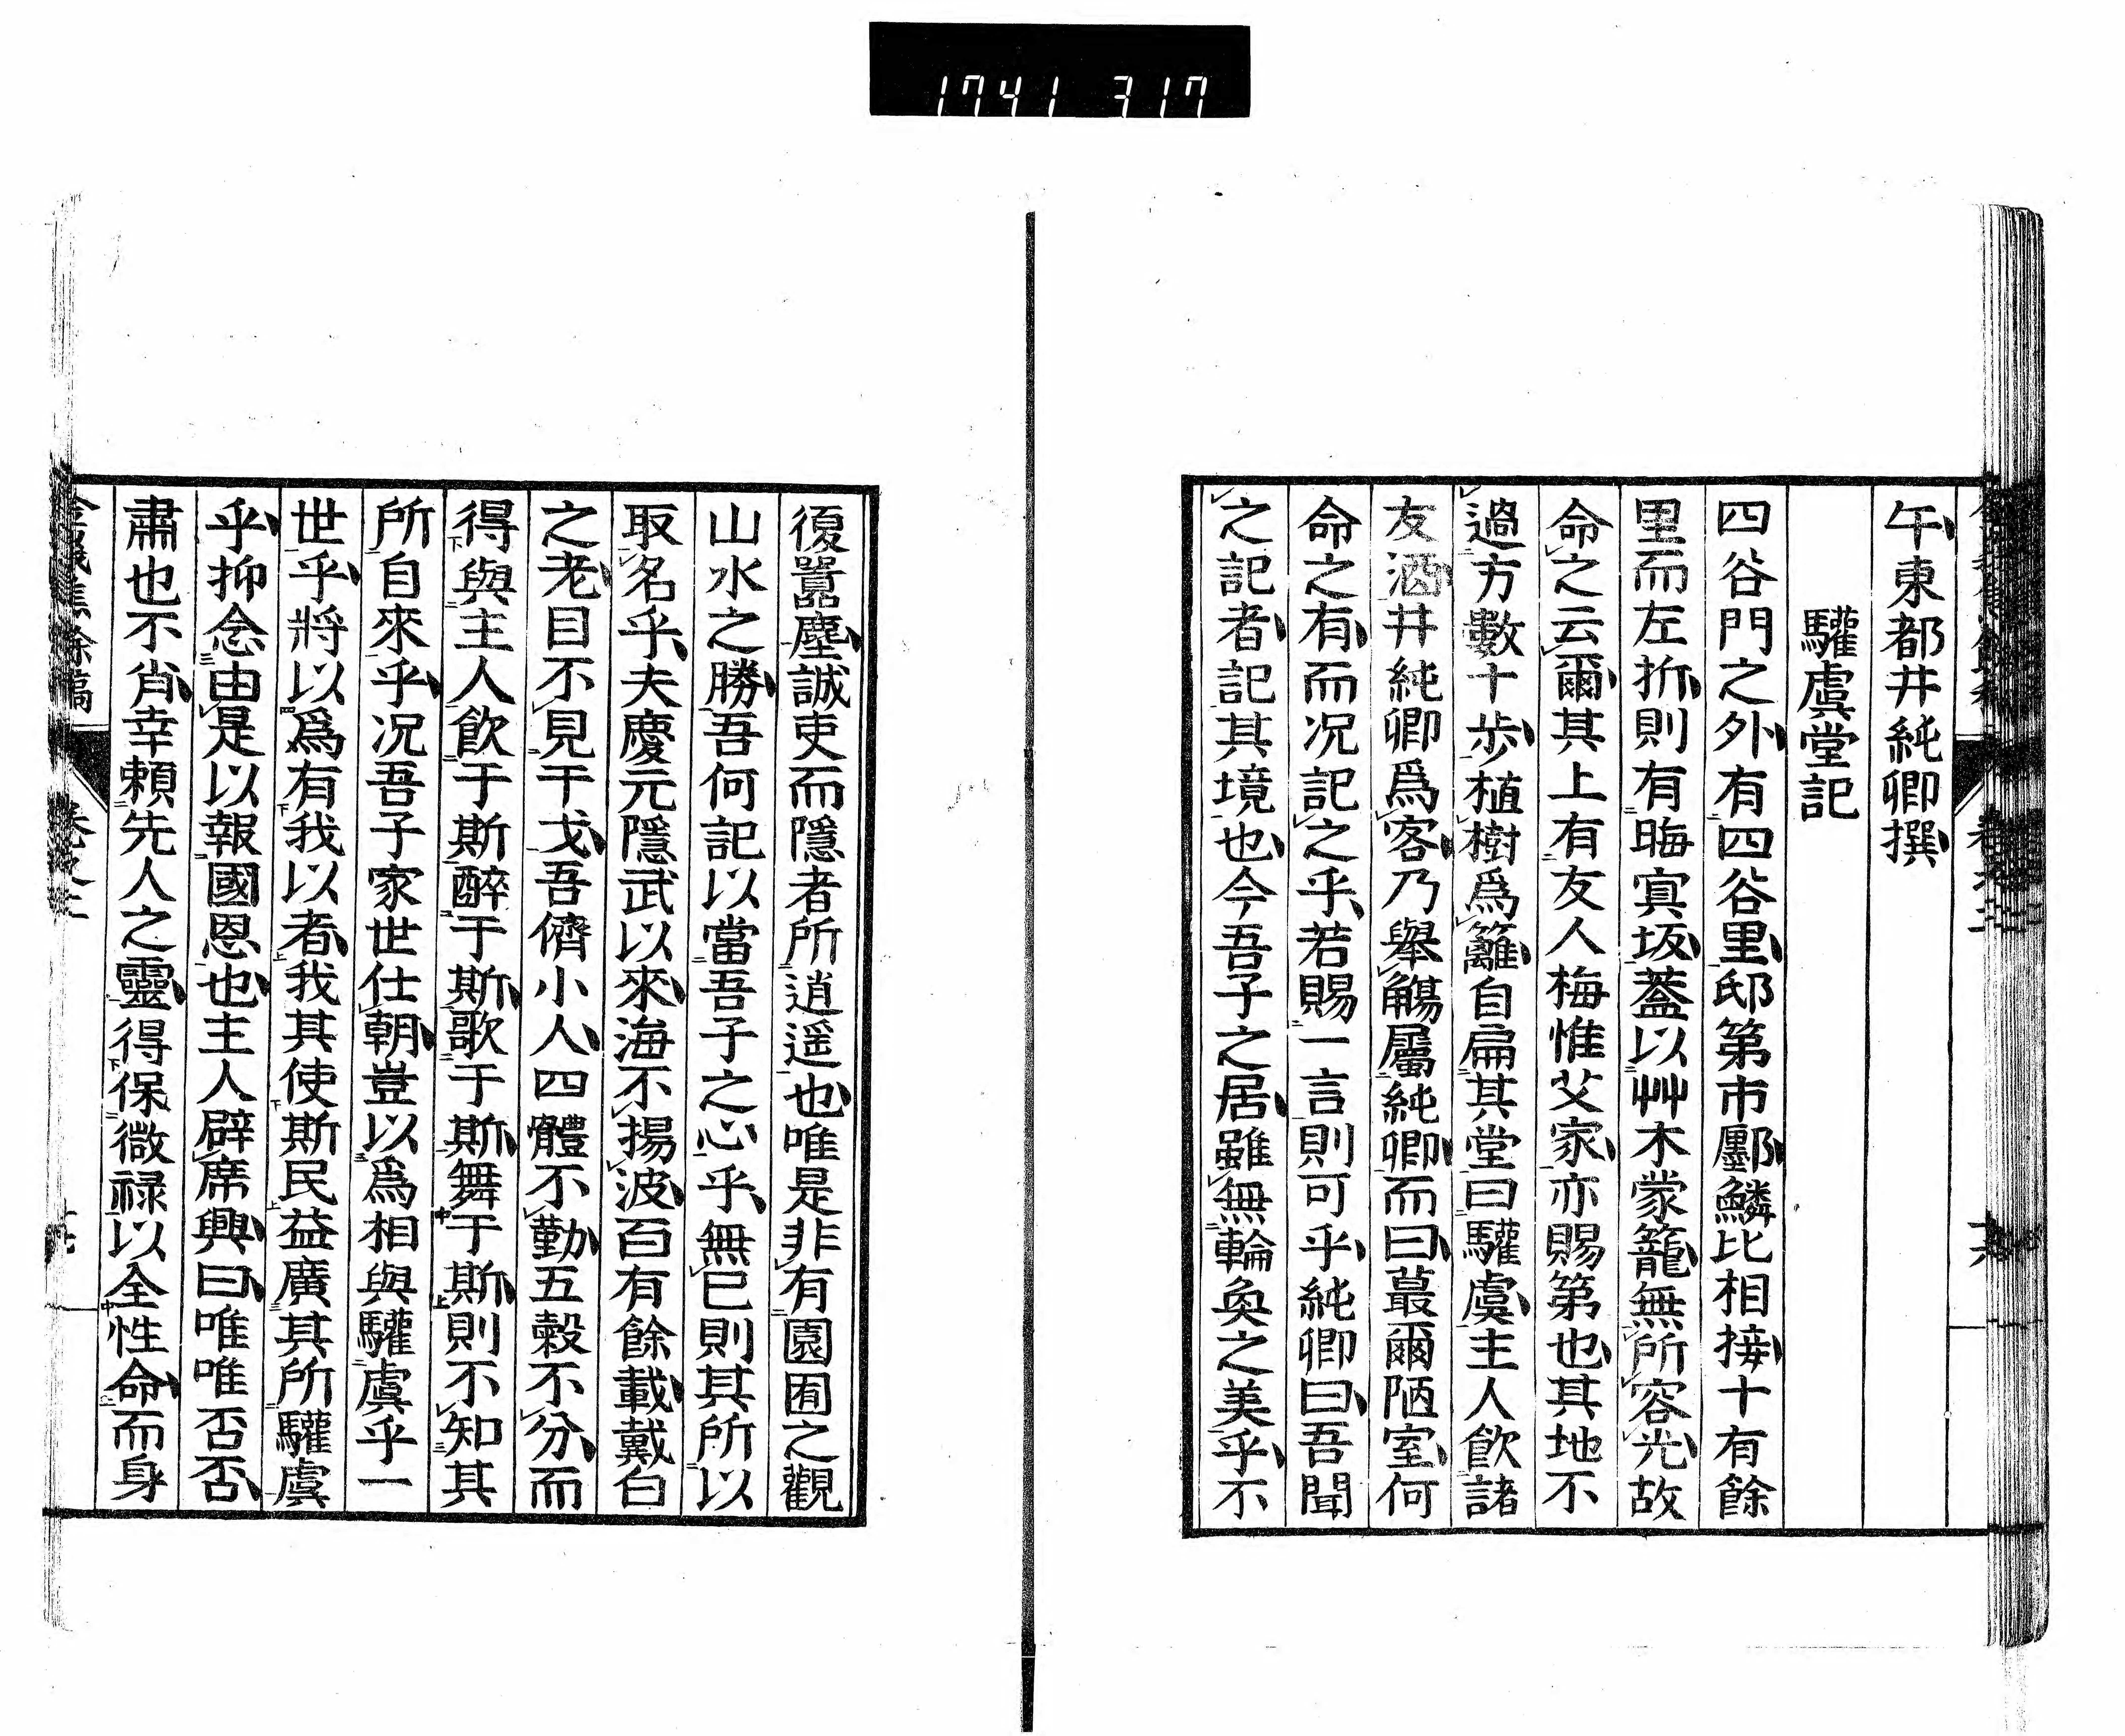 1741 317
午東都井純卿撰
驩虞堂記
四谷門之外有四谷里邸第市鄽鱗比相接十有餘
里而左折則有晦寘坂蓋以艸木蒙籠無所容光故
命之云爾其上有友人梅惟艾家亦賜第也其地不
過方數十步植樹爲籬自扁其堂曰驩虞主人飲諸
友酒井純卿爲客乃舉觴屬純卿而曰蕞爾陋室何
命之有而况記之乎若賜一言則可乎純卿曰吾聞
之記者記其境也今吾子之居雖無輪奐之美乎不
復囂塵誠吏而隱者所逍遥也唯是非有園囿之觀
山水之勝吾何記以當吾子之心乎無已則其所以
取名乎夫慶元隱武以來海不揚波百有餘載戴白
之老目不見干戈吾儕小人四體不勤五穀不分而
得與主人飲于斯醉于斯歌于斯舞于斯則不知其
所自來乎况吾子家世仕朝豈以爲相與驩虞乎一
世乎將以爲有我以者我其使斯民益廣其所驩虞
乎抑念由是以報國恩也主人辟席興曰唯唯否否
肅也不肖幸賴先人之靈得保微祿以全性命而身